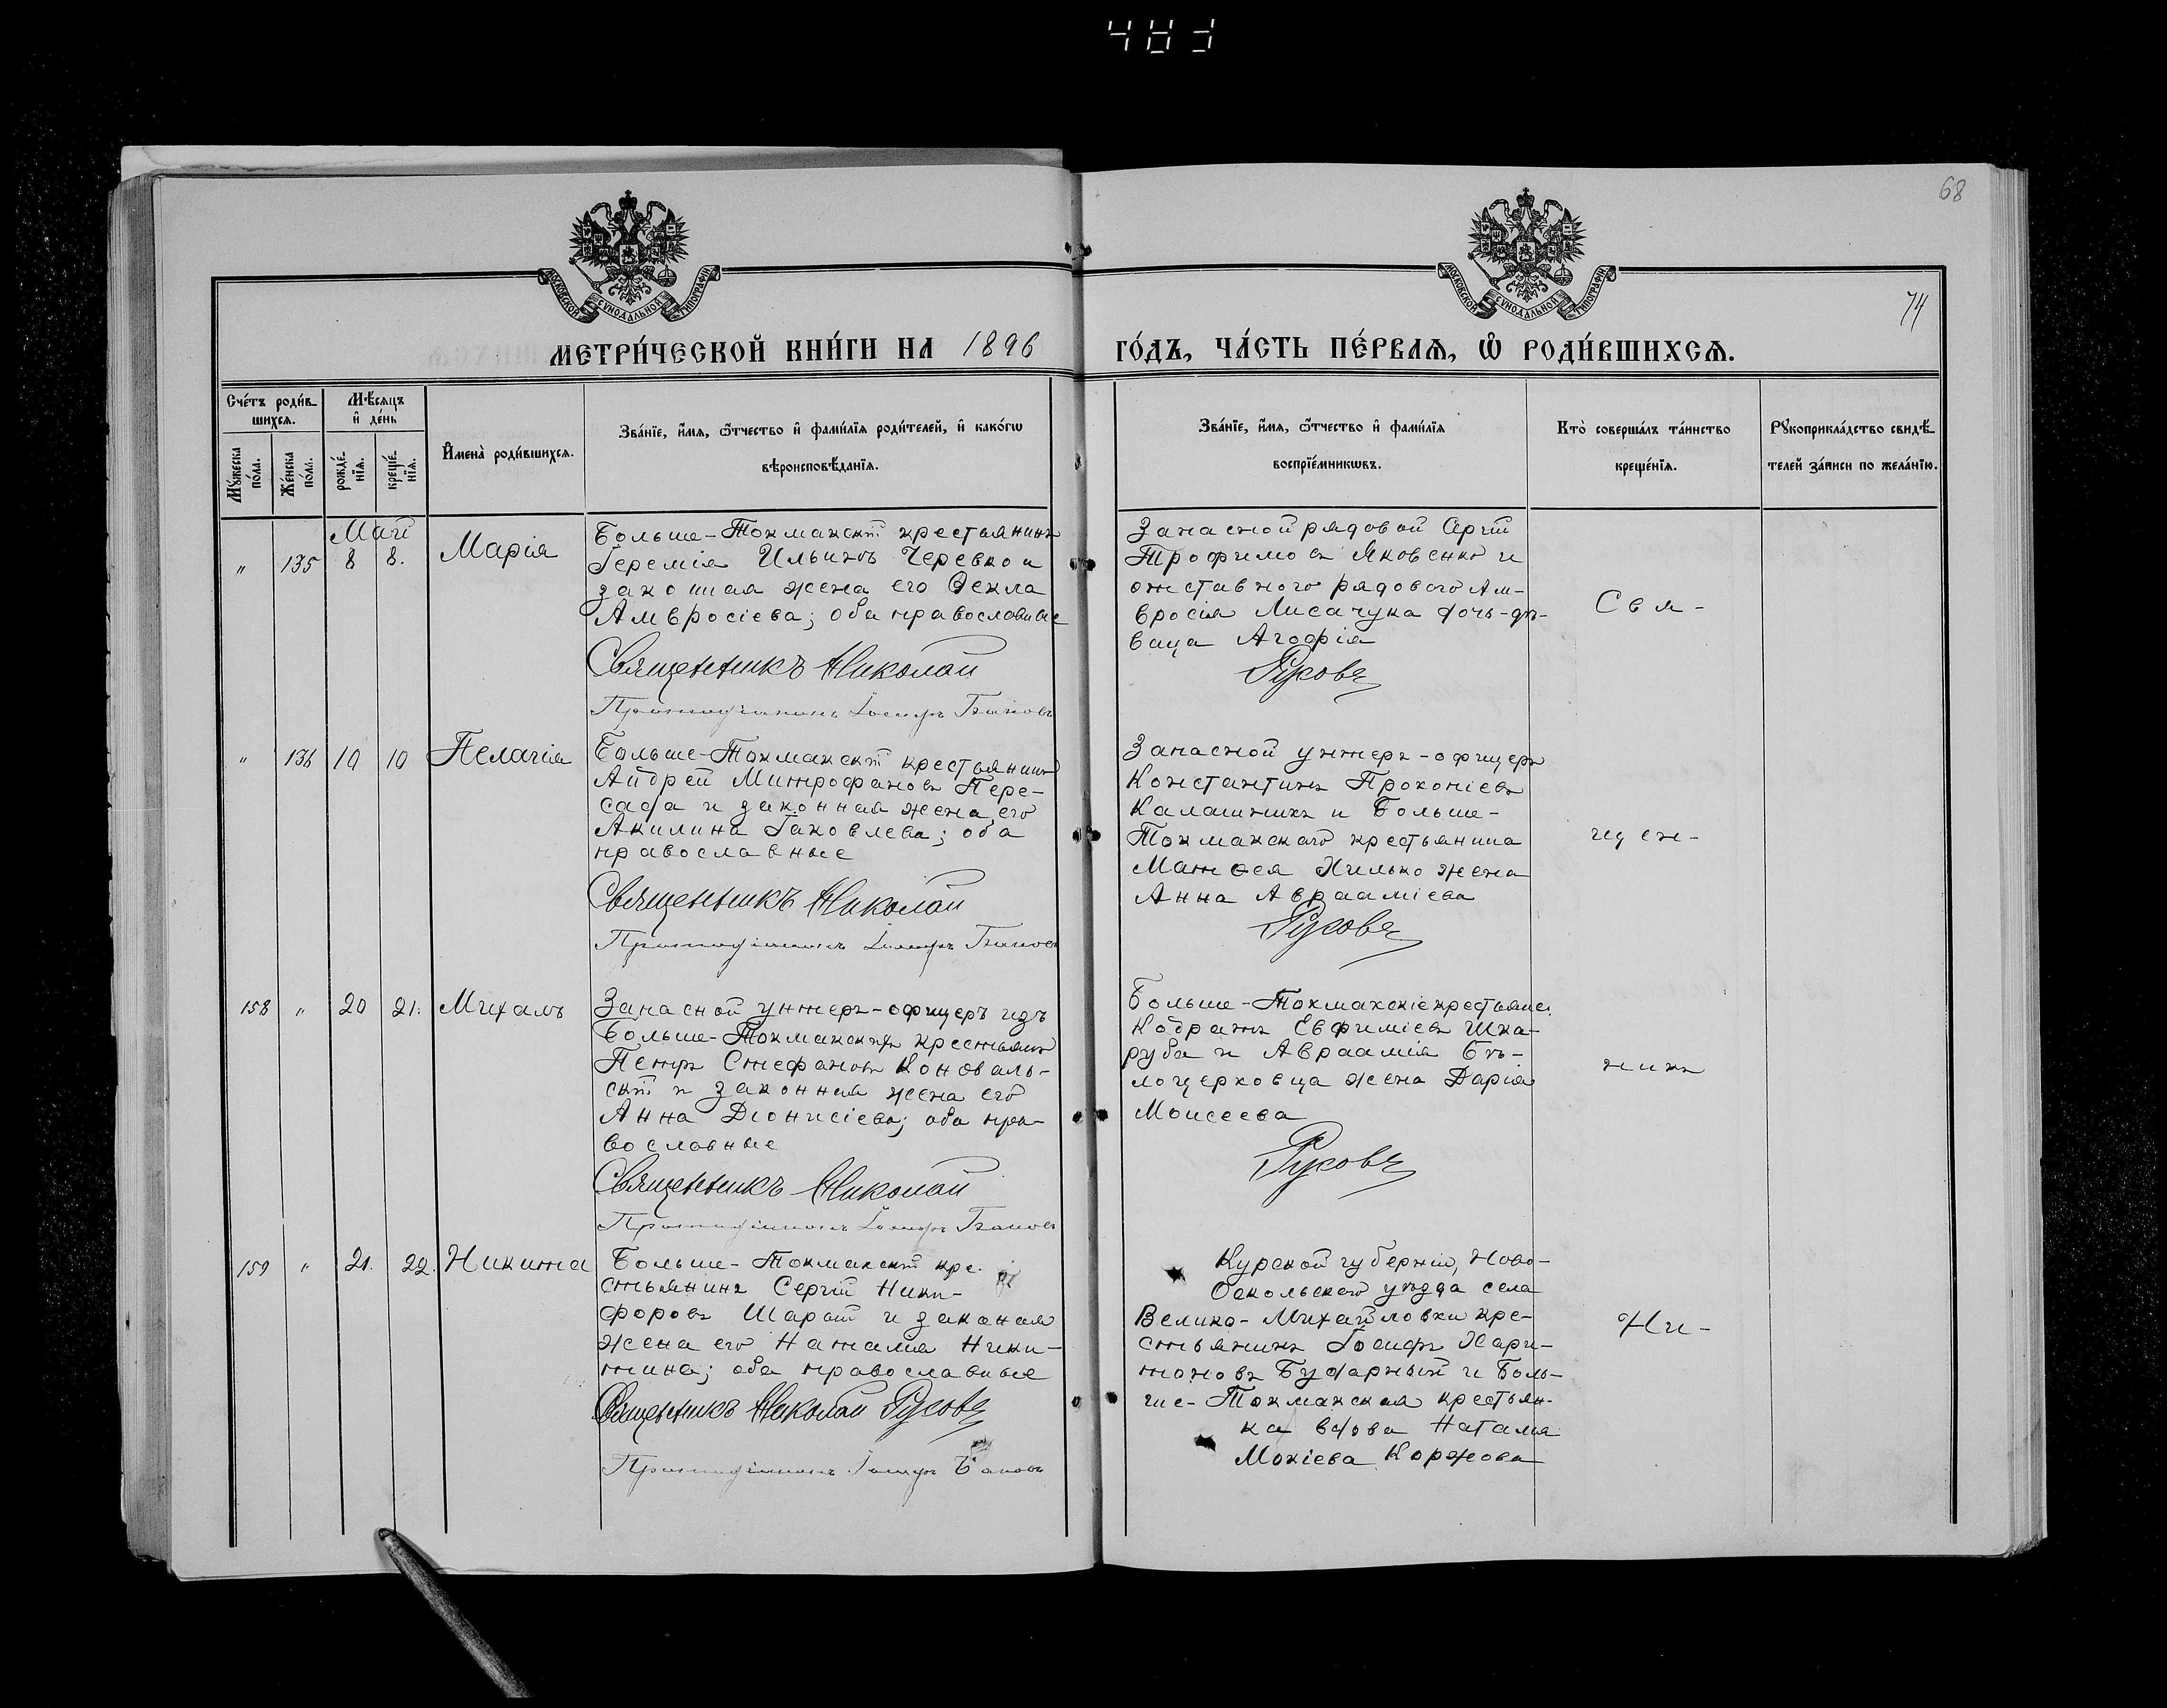 483
68
74
МОСКОВСКОЙ СѴНОДАЛЬНОЙ ТИПОГРАФІИ
МОСКОВСКОЙ СѴНОДАЛЬНОЙ ТИПОГРАФІИ
МЕТРИ́ЧЕСКОЙ КНИ́ГИ НА 1896
ГО́ДЪ, ЧА́СТЬ ПЕ́РВАѦ, Ѡ҆ РОДИ́ВШИХСѦ.
Сче́тъ роди́в-
шихсѧ.
Мѣ́сѧцъ
и҆ де́нь
Мꙋ́жеска
по́ла.
Же́нска
по́ла.
рожде́-
нїѧ.
креще́-
нїѧ.
И҆мена̀ роди́вшихсѧ.
Зва́нїе, и҆́мѧ, ѻ҆́тчество и҆ фами́лїѧ роди́телей, и҆ како́гѡ
вѣроисповѣ́данїѧ.
Зва́нїе, и҆́мѧ, ѻ҆́тчество и҆ фами́лїѧ
воспрїе́мникѡвъ.
Кто̀ соверша́лъ та́инство
креще́нїѧ.
Рꙋкоприкла́дство свидѣ́-
телей за́писи по жела́нїю.
Май
" 135 8 8. Марія
Больше-Токмакскій крестьянинъ
Іеремія Ильинъ Черевко и
законная жена его Ѳекла
Амвросіева; оба православные
Священникъ Николай
Протодіаконъ Іосифъ Бановъ
Запасной рядовой Сергій
Трофимовъ Яковенко и
отставного рядового Ам-
вросія Лисачука дочь-дѣ-
вица Агафія
Русовъ
Свя-
" 136 10 10 Пелагія
Больше-Токмакскій крестьянинъ
Андрей Митрофановъ Пере-
сада и законная жена его
Акилина Іаковлева; оба
православные
Священникъ Николай
Протодіаконъ Іосифъ Бановъ
Запасной унтеръ-офицеръ
Константинъ Прокопіевъ
Калашникъ и Больше-
Токмакскаго крестьянина
Матѳея Хилько жена
Анна Авраамієва
Русовъ
щен-
158 " 20 21. Михаилъ
Запасной унтеръ-офицеръ изъ
Больше-Токмакскихъ крестьянъ
Петръ Стефановъ Коноваль-
скій и законная жена его
Анна Діонисіева; оба пра-
вославные
Священникъ Николай
Протодіаконъ Іосифъ Бановъ
Больше-Токмакскіе крестьяне:
Кодратъ Евфиміевъ Шка-
руба и Авраамія Бѣ-
лоцерковца жена Дарія
Моисеева
Русовъ
никъ
159 " 21. 22. Никита
Больше-Токмакскій кре-
стьянинъ Сергій Ники-
форовъ Шарай и законая
жена его Наталия Ники-
тина; оба православные
Священникъ Николай Русовъ
Протодіаконъ Іосифъ Бановъ
Курской губерніи, Ново-
Оскольскаго уѣзда села
Велико-Михайловки кре-
стьянинъ Іосифъ Хари-
тоновъ Бударный и Боль-
ше-Токмакская крестьян-
ка вдова Наталия
Мокіева Коржова
Ни-